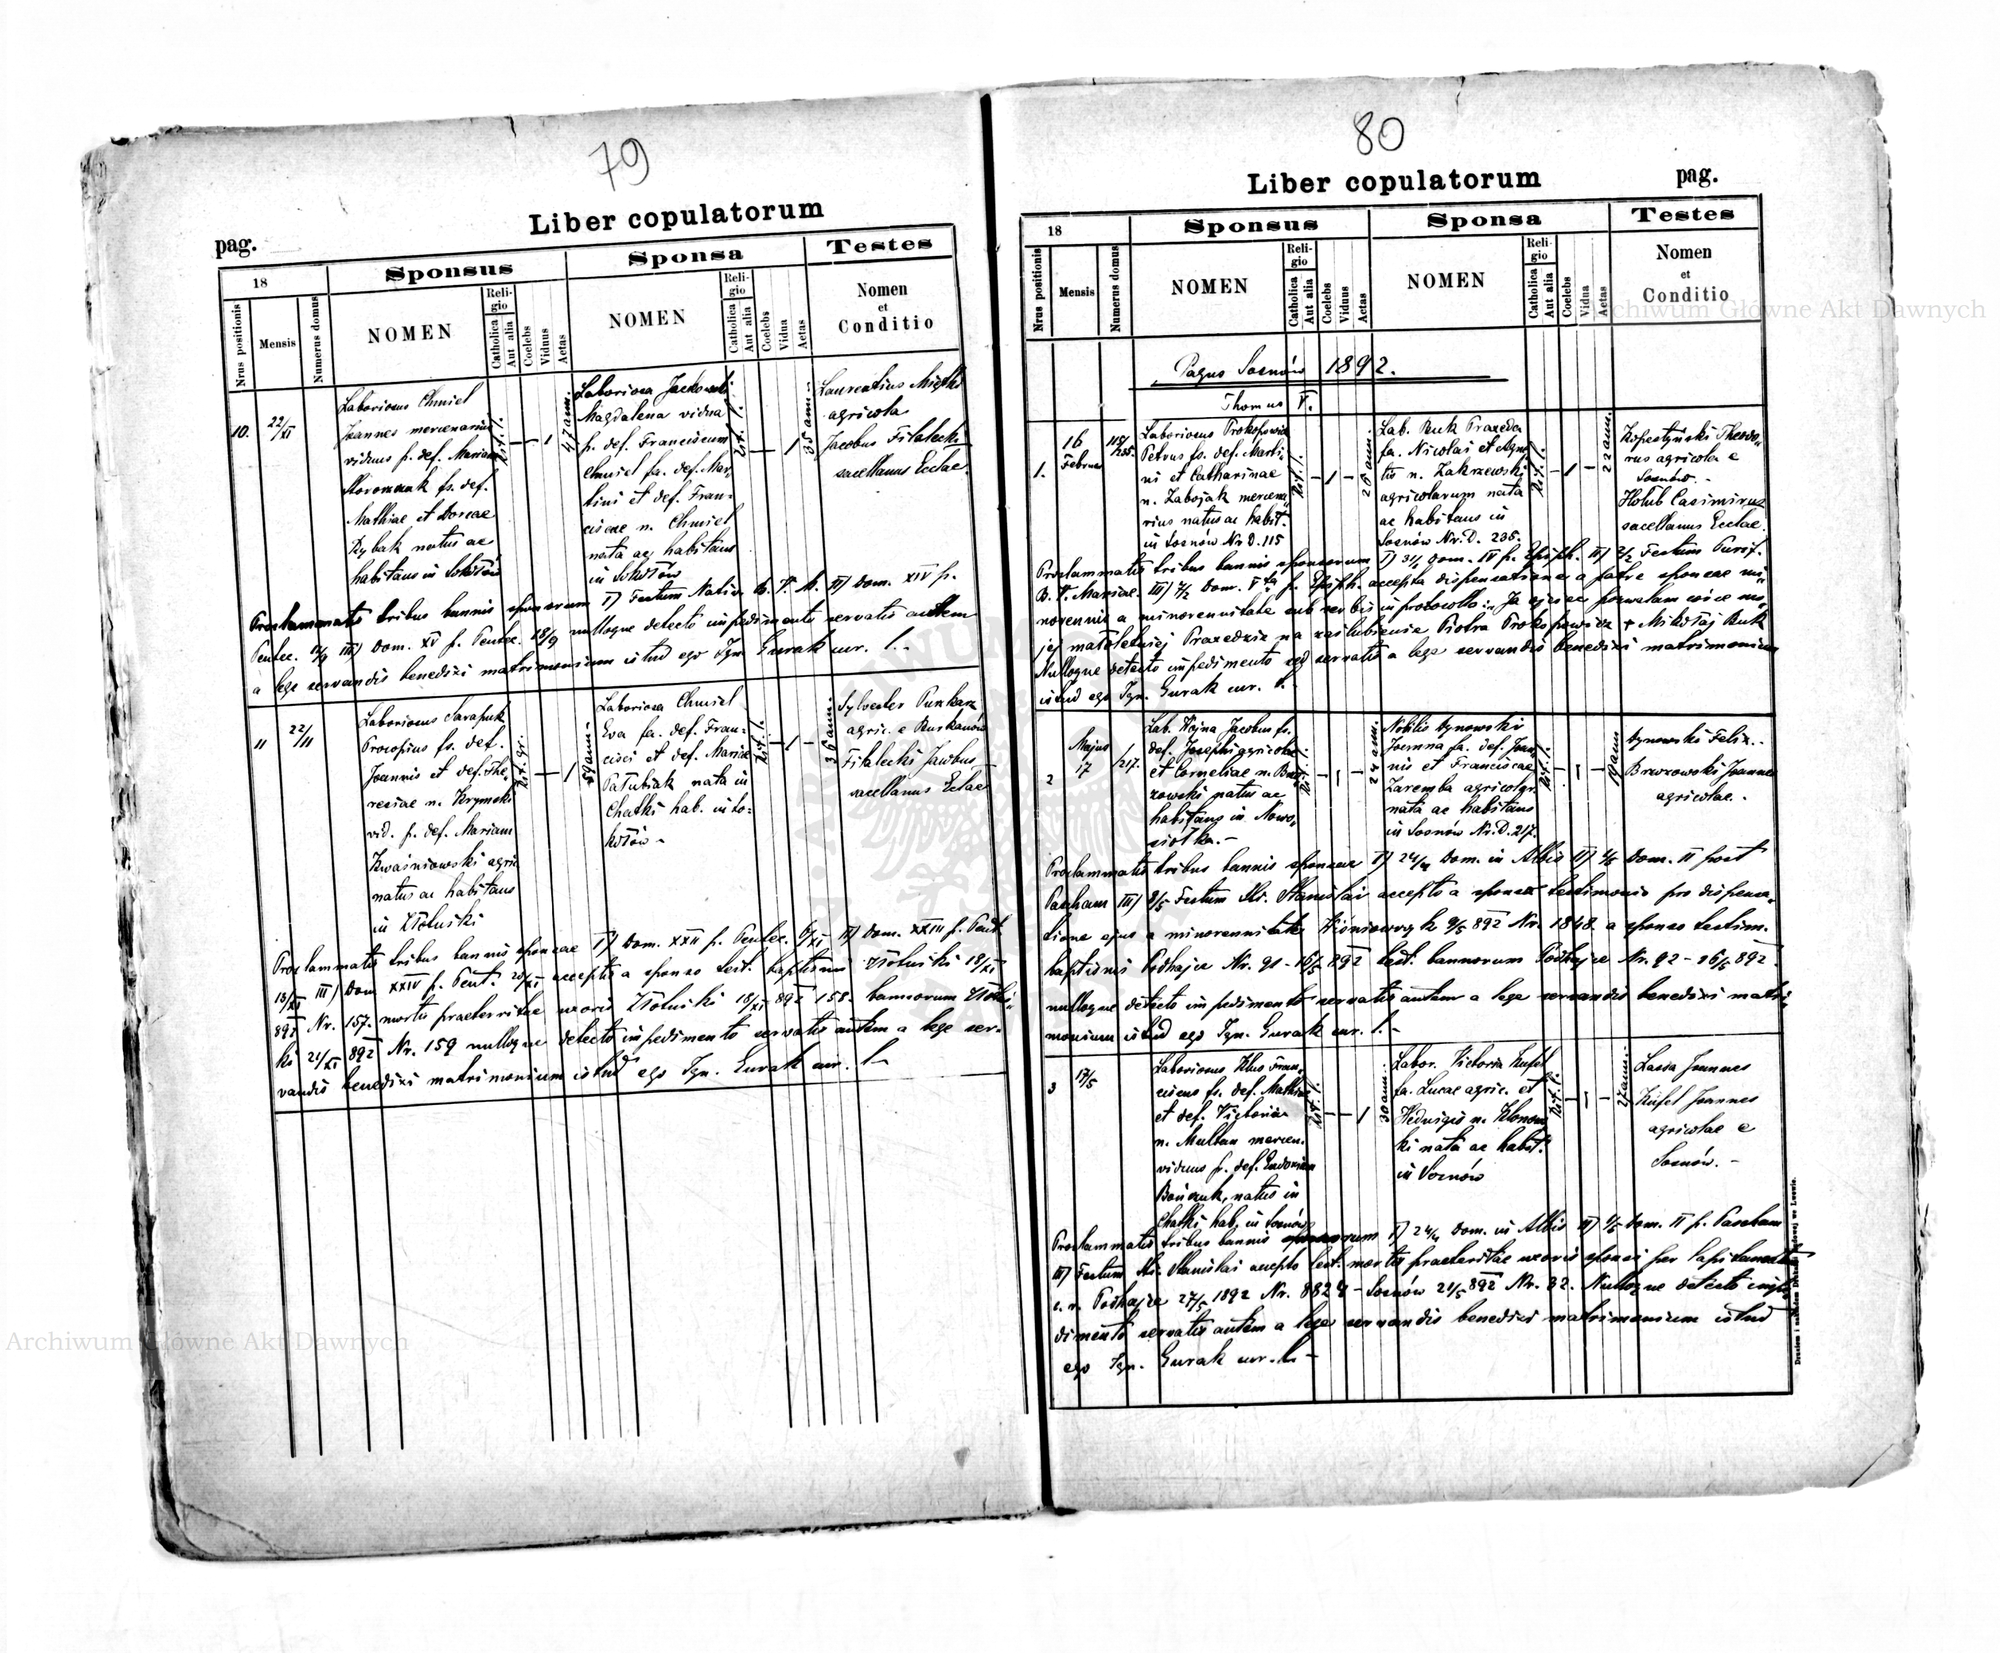 79
Liber copulatorum
pag.
18
Sponsus
Sponsa
Testes
Nrus positionis
Mensis
Numerus domus
NOMEN
Religio
Catholica
Aut alia
Coelebs
Viduus
Aetas
NOMEN
Religio
Catholica
Aut alia
Coelebs
Vidua
Aetas
Nomen
et
Conditio
10.
22/XI
Laboriosus Chmiel
Joannes mercenarius
viduus p. def. Mariam
fs. def.
Mathiae et
Rybak natus ac
habitans in Sokołów
Rit. l.
1
47 ann.
Laboriosa
Magdalena vidua
p. def. Franciscum
Chmiel fa. def. Mar-
tini et def. Fran-
ciscae n. Chmiel
nata ac habitans
in Sokołów
Rit. l.
1
35 ann.
Laurentius
agricola
Jacobus Filalecki
sacellanus Eclae.
Proclammatis tribus bannis sponsorum I) Festum Nativ. B. V. M. II) Dom. XIV p.
Pentec. III) Dom. XV p. Pentec. 18/9 nulloque detecto impedimento servatis autem
a lege servandis benedixi matrimonium istud ego Ign. Gurak cur. l. -
11
22/11
Laboriosus Sarapuk
Procopius fs. def.
Joannis et def. The-
resiae n. Krymski
vid. p. def. Mariam
Kwaśniowski agric.
natus ac habitans
in Złotniki
Rit. gr.
1
Laboriosa Chmiel
Eva fa. def. Fran-
cisci et def. Mariae
Patubiak nata in
Chatki hab. in So-
kołów -
Rit. l.
1
36 ann.
Sylvester
agric. e Burkanów
Filalecki Jacobus
sacellanus Eclae
Proclammatis tribus bannis sponsae I) Dom. XXII p. Pentec. 6/XI II) Dom. XXIII p. Pent.
13/XI III) Dom XXIV p. Pent. 20/XI accepto a sponso test. baptismi Złotniki 18/XI
892 Nr. 157. mortis praeteritae uxoris Złotniki 18/XI 892 158. bannorum Złotni-
ki 21/XI 892 Nr. 159 nulloque detecto impedimento servatis autem a lege ser-
vandis benedixi matrimonium istud ego Ign. Gurak cur. l -
80
Liber copulatorum
pag.
18
Sponsus
Sponsa
Testes
Nrus positionis
Mensis
Numerus domus
NOMEN
Religio
Catholica
Aut alia
Coelebs
Viduus
Aetas
NOMEN
Religio
Catholica
Aut alia
Coelebs
Vidua
Aetas
Nomen
et
Conditio
Pagus Sosnów 1892.
Thomus V.
1.
16
Februar
115/235
Laboriosus Prokopowicz
Petrus fs. def. Marti-
ni et Catharinae
n. Zabojak mercena-
rius natus ac habit.
in Sosnów Nr D. 115
Rit. l.
1
26 ann.
Lab. Buk Praxeda
fa. Nicolai et Agne-
tis n. Zakrzewski
agricolarum nata
ac habitans in
Sosnów Nr. D. 235.
Rit. l.
1
22 ann.
Kopestyński Theodo-
rus agricola e
Sosnów. -
Hołub Casimirus
sacellanus Eclae.
Proclammatis tribus bannis sponsorum I) 31/1 Dom. IV p. Epiph. II) 2/2 Festum Purif.
B. V. Mariae. III) 7/2 Dom. V ta p. Epiph. accepta dispensatione a patre sponsae mi-
norennis a minorennitate sub verbis in protocollo: Ja ojciec pozwalam córce mo-
jej małoletniej Praxedzie na zaślubienie Piotra Prokopowicza + Mikołaj Buk
Nulloque detecto impedimento sed servatis a lege servandis benedixi matrimonium
istud ego Ign. Gurak cur. l. -
2
Majus
17
/217.
Lab. Wojna Jacobus fs.
def. Josephi agricolae
et Corneliae n. Brzo-
zowski natus ac
habitans in Nowo-
siółka. -
1
24 ann.
Nobilis Łynowski
Joanna fa. def. Joan-
nis et Franciscae
Zaremba agricolar.
nata ac habitans
in Sosnów Nr. D. 217.
Rit. l.
1
19 ann
Łynowski Felix. -
Brzozowski Joannes
agricolae. -
Proclammatis tribus bannis sponsae I) 24/4 Dom. in Albis II) 1/5 Dom. II post
Pascham III) 8/5 Festum St. Stanislai accepto a sponsa testimonio pro dispensa-
tione ejus a minorennitate Wiśniowczyk 9/5 892 Nr. 1848. a sponso testim.
baptismi Podhajce Nr. 91 - 16/5 892 test. bannorum Podhajce Nr. 92 - 16/5 892.
nulloque detecto impedimento servatis autem a lege servandis benedixi matri-
monium istud ego Ign. Gurak cur. l. -
3
17/5
Laboriosus Klus Fran-
ciscus fs. def. Mathiae
et def. Victoriae
n. Multan mercen.
viduus p. def. Eudoxiam
natus in
Chatki hab. in Sosnów
Rit. l.
1
30 ann.
Labor. Victoria Kufel
fa. Lucae agric. et
Hedwigis n. Klonow-
ki nata ac habit.
in Sosnów
Rit. l.
1
27 ann.
Lassa Joannes
Kufel Joannes
agricolae e
Sosnów. -
Proclammatis tribus bannis sponsorum I) 24/4 Dom. in Albis II) 1/5 Dom. II p. Pascham
III) Festum St. Stanislai accepto test. mortis praeteritae uxoris sponsi per
c. r. Podhajce 27/5 1892 Nr. 8824 - Sosnów 21/5 892 Nr. 32. Nulloque detecto impe-
dimento servatis autem a lege servandis benedixi matrimonium istud
ego Ign. Gurak cur. l. -
Archiwum Główne Akt Dawnych
Archiwum Główne Akt Dawnych